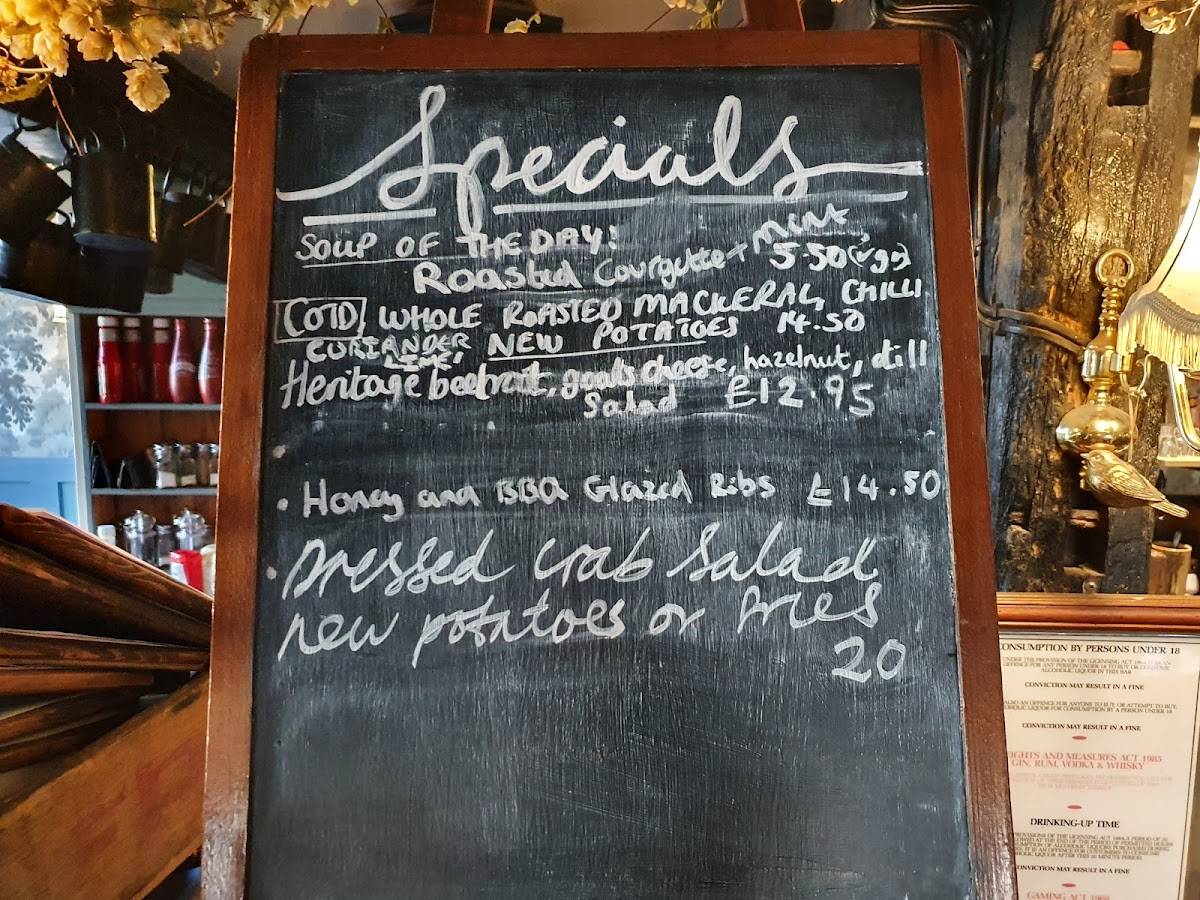 Specials
SOUP OF THE DAY:
Roasted Courgette + MINT,
5.50 (vgs)
COLD WHOLE ROASTED MACKERAL, CHILLI
CORIANDER LIME, NEW POTATOES 14.50
Heritage beetroot, goats cheese, hazelnut, dill
Salad £12.95
• Honey and BBQ Glazed Ribs £14.50
• Dressed Crab Salad
new potatoes or fries
20
CONSUMPTION BY PERSONS UNDER 18
CONVICTION MAY RESULT IN A FINE
CONVICTION MAY RESULT IN A FINE
IGHTS AND MEASURES ACT 1985
GIN, RUM, VODKA & WHISKY
DRINKING-UP TIME
CONVICTION MAY RESULT IN A FINE
GAMING ACT 1968